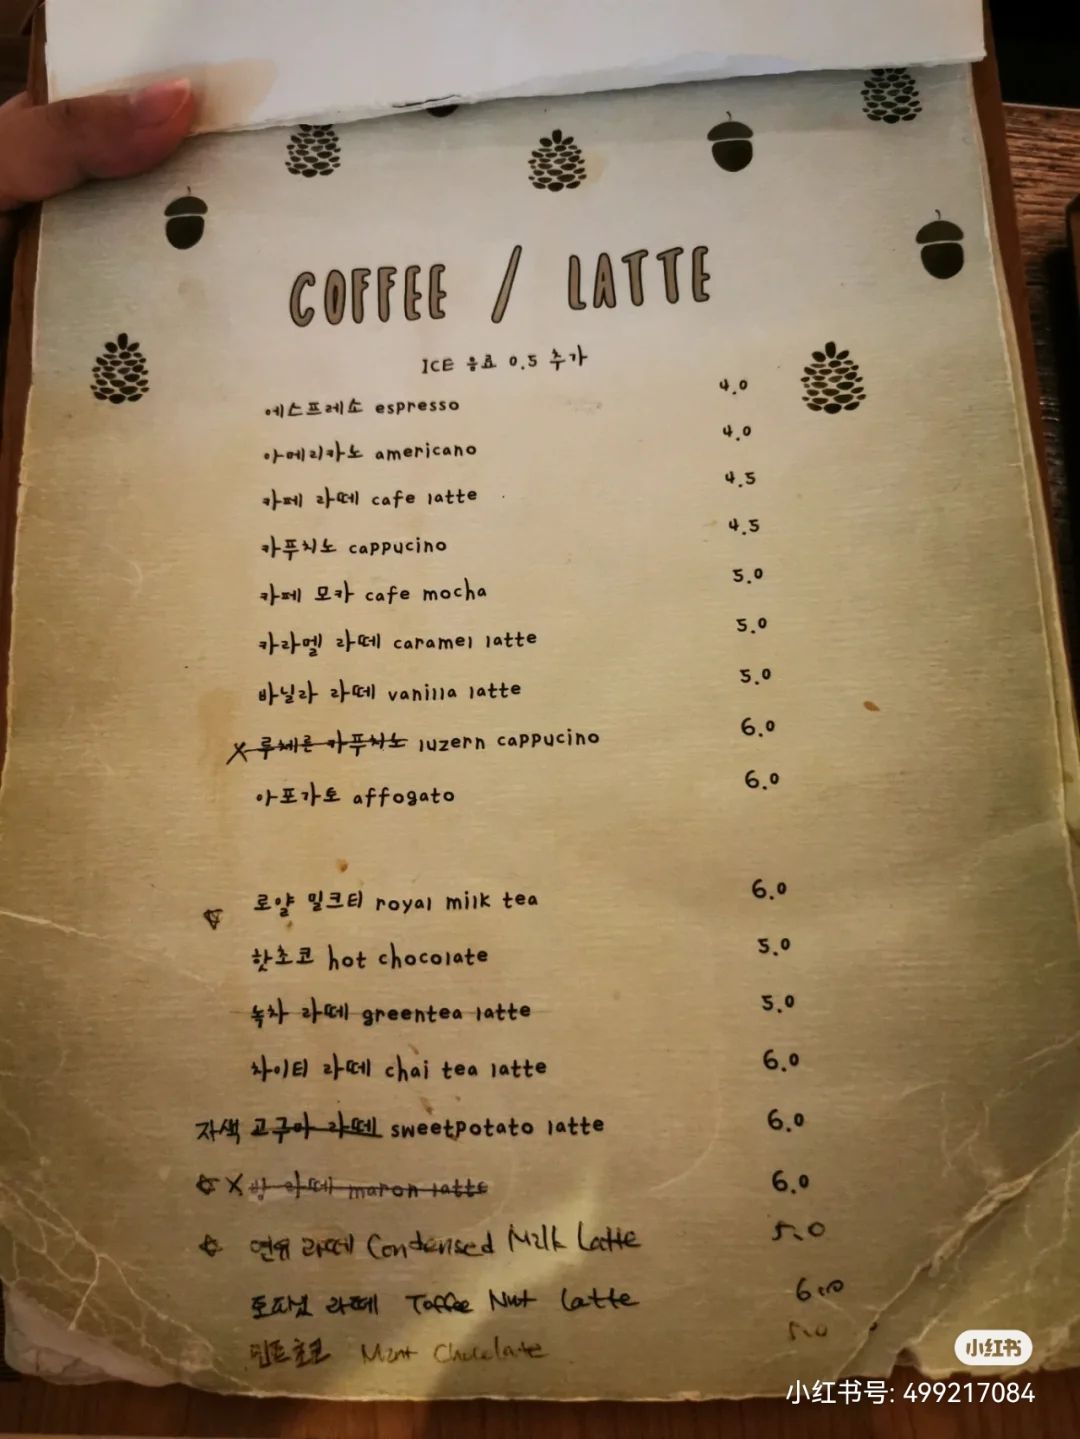 COFFEE / LATTE
ICE 음료 0.5 추가
에스프레소 espresso 4.0
아메리카노 americano 4.0
카페 라떼 cafe latte 4.5
카푸치노 cappucino 4.5
카페 모카 cafe mocha 5.0
카라멜 라떼 caramel latte 5.0
바닐라 라떼 vanilla latte 5.0
X 루체른 카푸치노 luzern cappucino 6.0
아포가토 affogato 6.0
로얄 밀크티 royal milk tea 6.0
핫초코 hot chocolate 5.0
녹차 라떼 greentea latte 5.0
차이티 라떼 chai tea latte 6.0
자색 고구마 라떼 sweetpotato latte 6.0
X 밤 라떼 maron latte 6.0
연유 라떼 Condensed Milk Latte 5.0
토피넛 라떼 Toffee Nut Latte 6.0
민트초코 Mint Chocolate 5.0
小红书
小红书号: 499217084